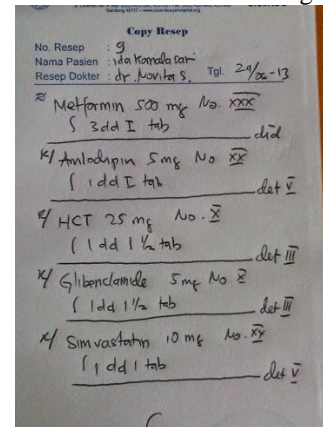 Bandung 40117 - www.
Copy Resep
No. Resep : 9
Nama Pasien : Ida Komala sari
Resep Dokter : dr. Novita S. Tgl. 24/06-13
R/ Metformin 500 mg No. XXX
∫ 3dd I tab
did
R/ Amlodipin 5 mg No XX
∫ 1dd I tab
det V
R/ HCT 25 mg No. X
∫ 1 dd 1 1/2 tab
det III
R/ Glibenclamide 5 mg No X
∫ 1dd 1 1/2 tab
det III
R/ Simvastatin 10 mg No. XX
∫ 1 dd 1 tab
det V